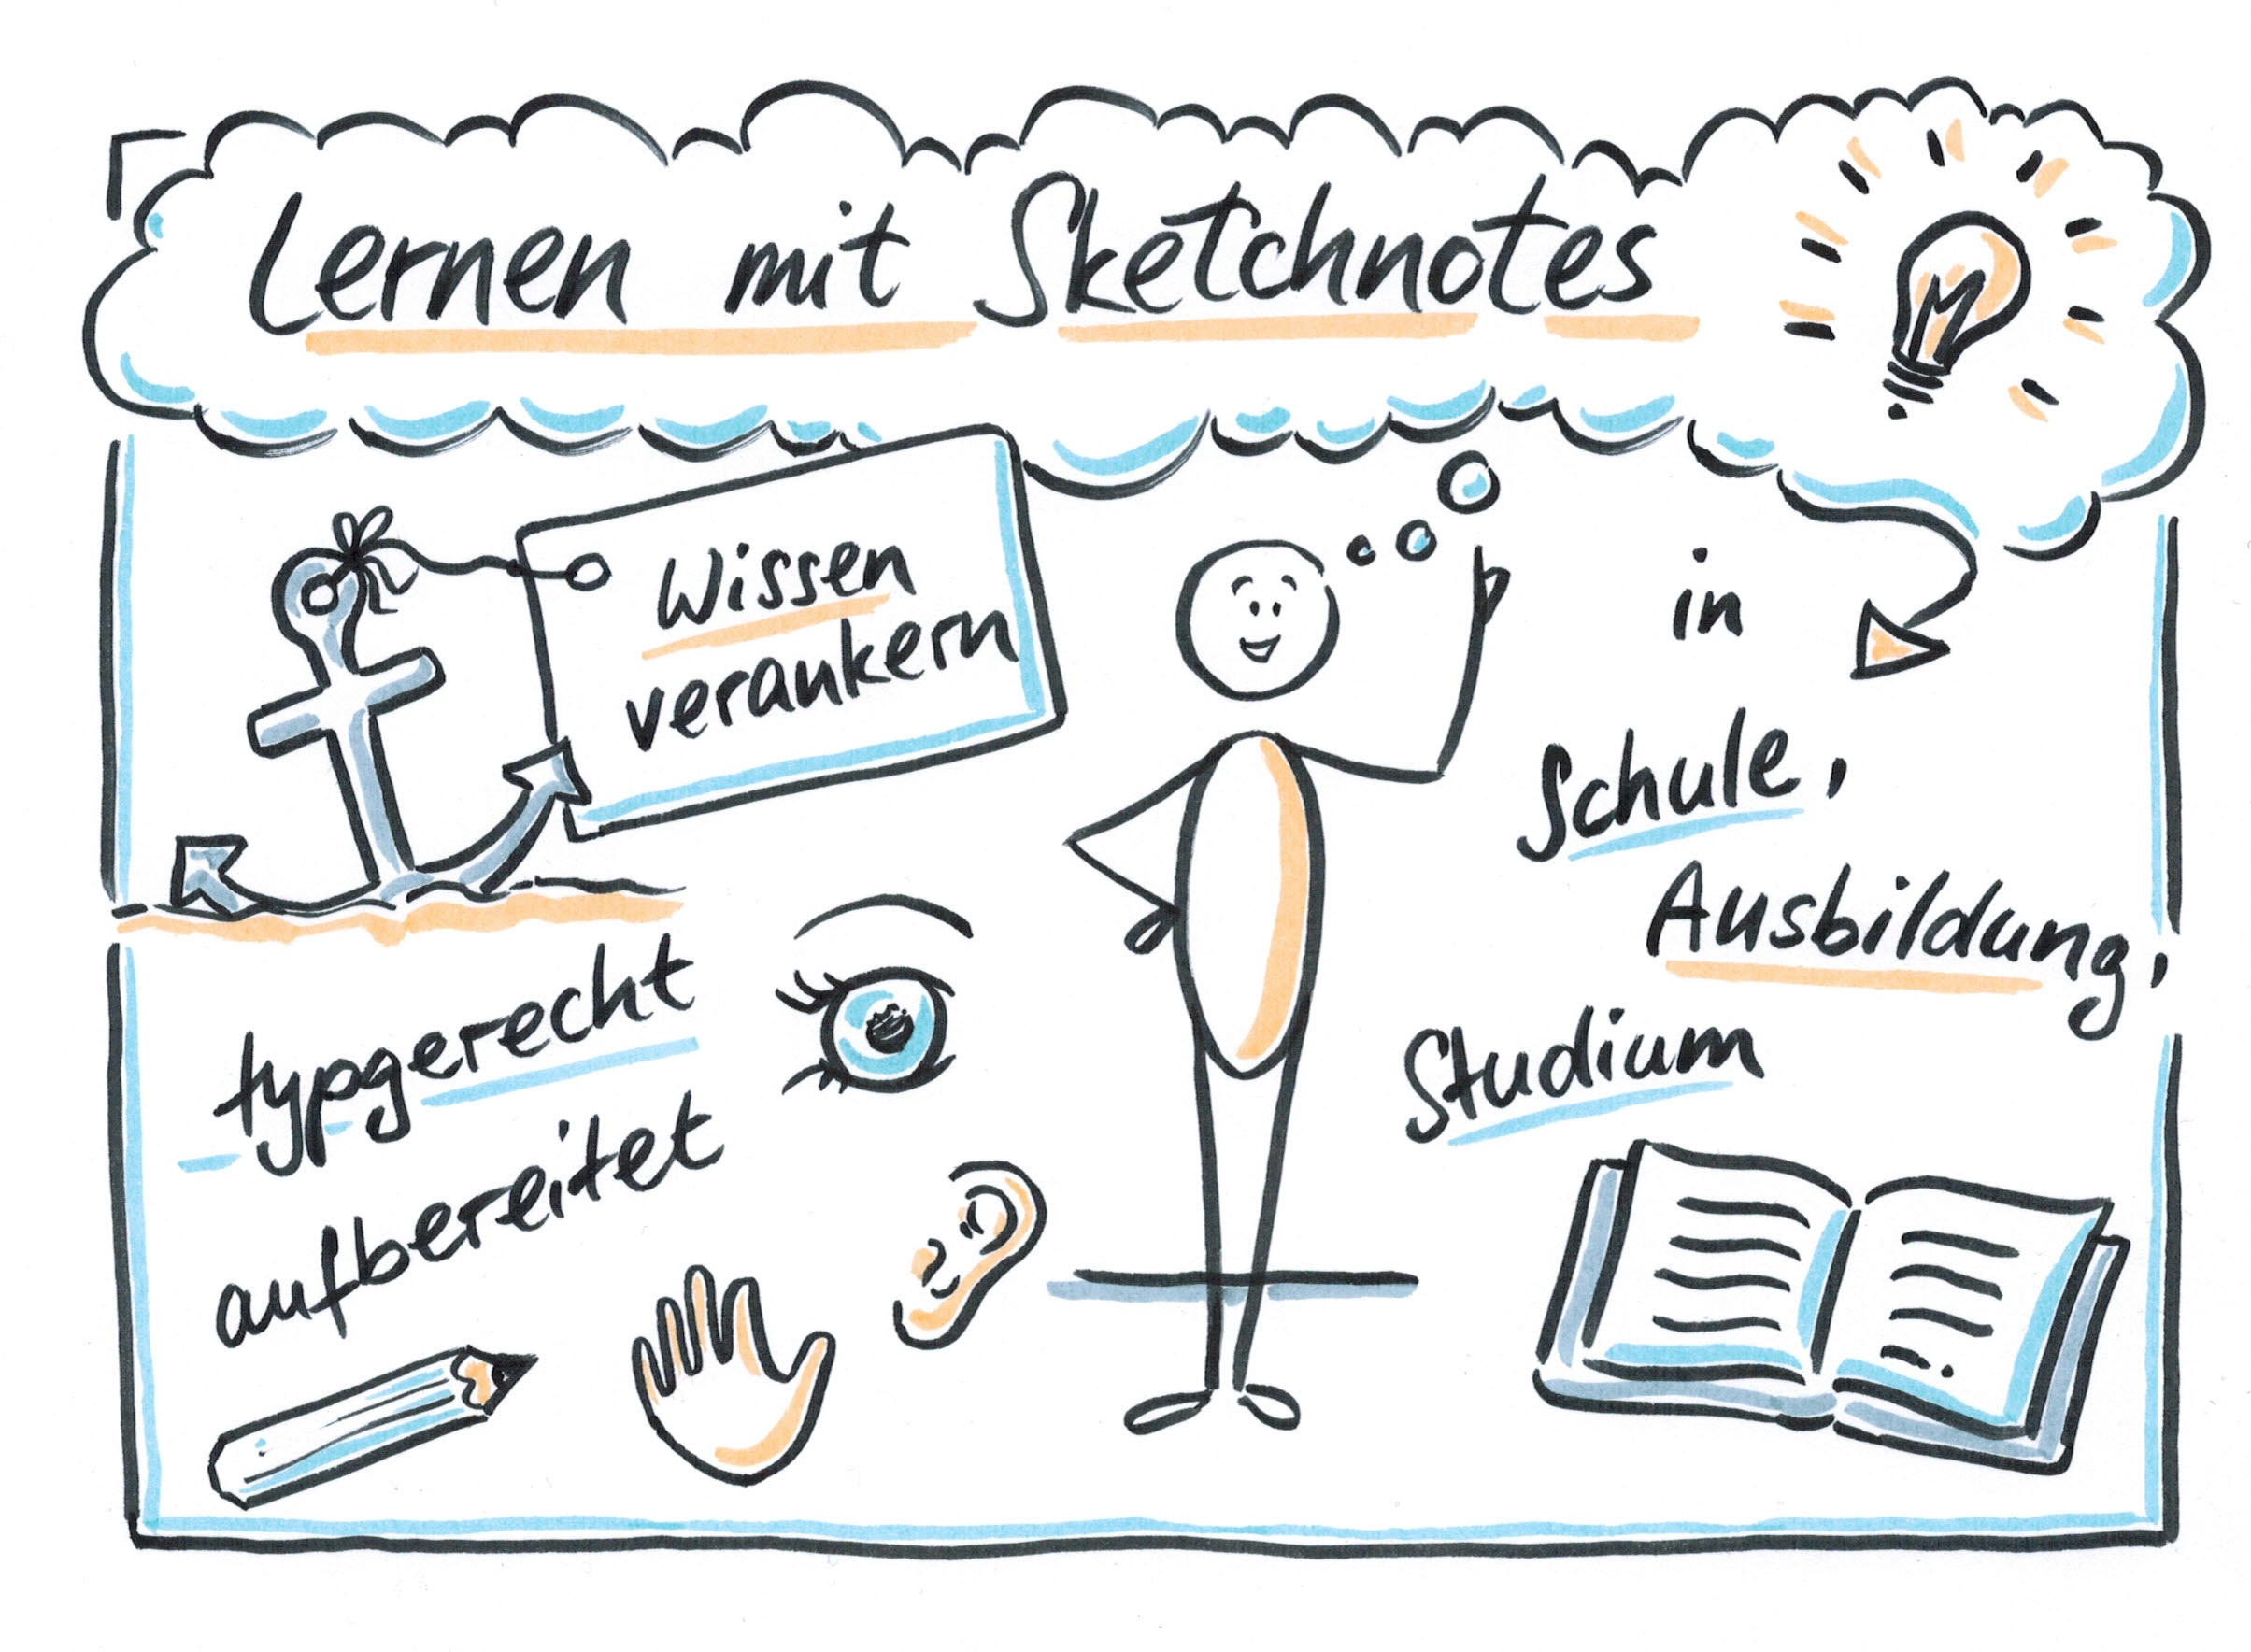 Lernen mit Sketchnotes
Wissen
verankern
typgerecht
aufbereitet
in
Schule,
Ausbildung,
Studium